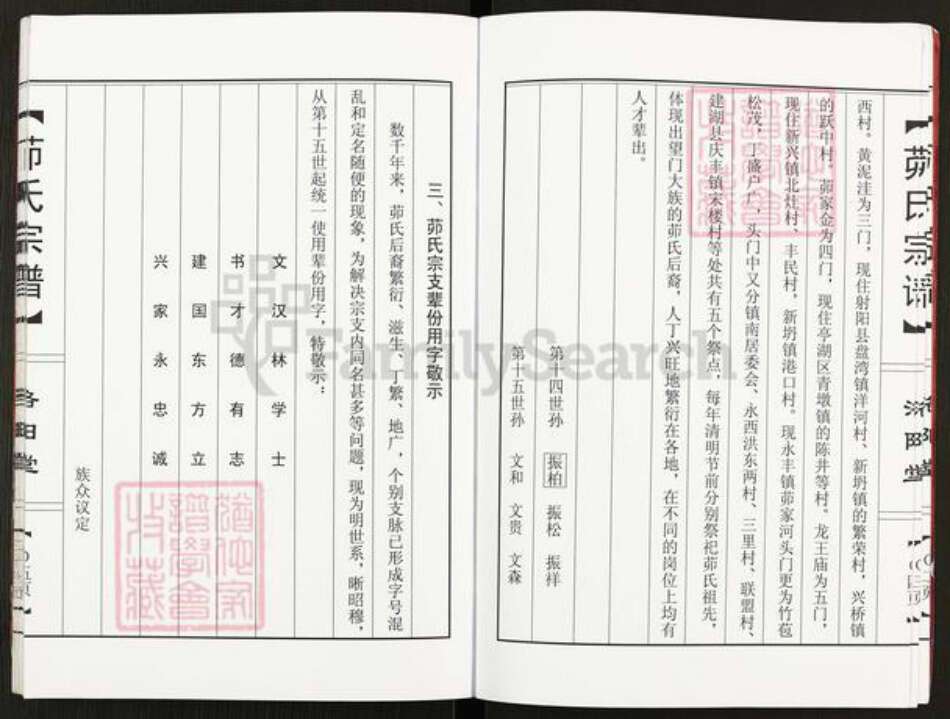 【茆氏宗谱】
洛阳堂
西村。黄泥洼为三门，现住射阳县盘湾镇洋河村、新坍镇的繁荣村，兴桥镇
的跃中村。茆家金为四门，现住亭湖区青墩镇的陈井等村。龙王庙为五门，
现住新兴镇北灶村、丰民村，新坍镇港口村。现永丰镇茆家河头门更为竹苞
松茂，丁盛户广，头门中又分镇南居委会、永西洪东两村、三里村、联盟村、
建湖县庆丰镇宋楼村等处共有五个祭点，每年清明节前分别祭祀茆氏祖先，
体现出望门大族的茆氏后裔，人丁兴旺地繁衍在各地，在不同的岗位上均有
人才辈出。
第十四世孙 振柏 振松 振祥
第十五世孙 文和 文贵 文森
三、茆氏宗支辈份用字敬示
数千年来，茆氏后裔繁衍、滋生、丁繁、地广，个别支脉已形成字号混
乱和定名随便的现象，为解决宗支内同名甚多等问题，现为明世系，晰昭穆，
从第十五世起统一使用辈份用字，特敬示：
文汉林学士
书才德有志
建国东方立
兴家永忠诚
族众议定
【茆氏宗谱】
洛阳堂
FamilySearch